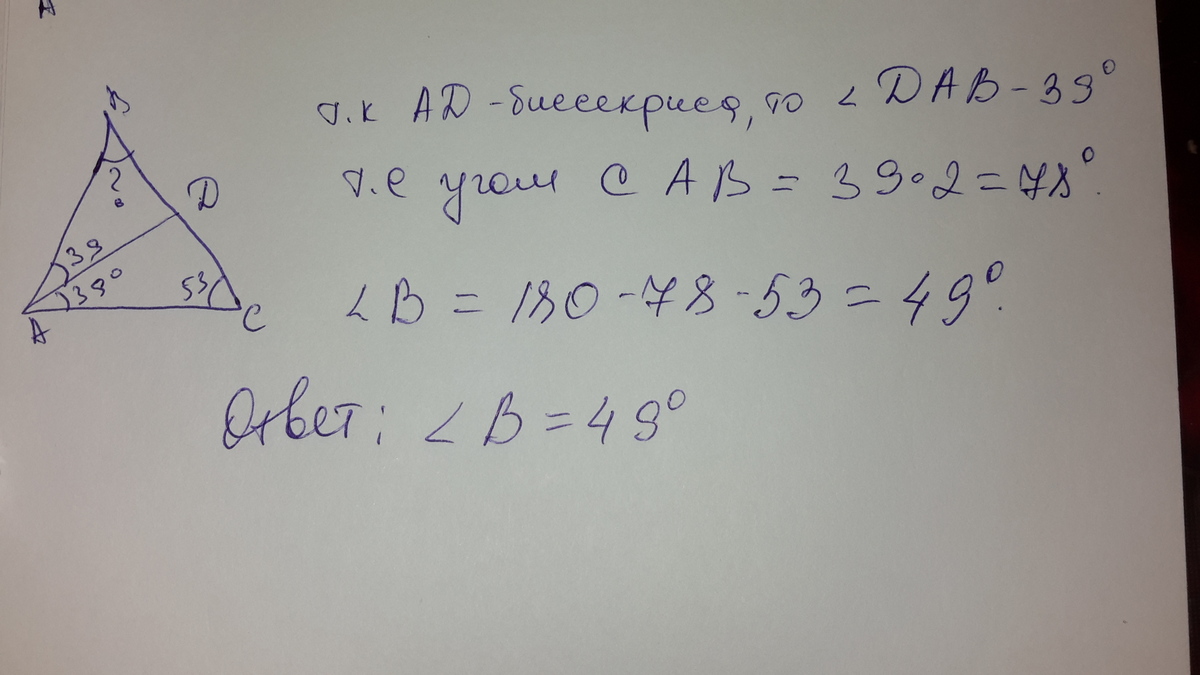 А
В
?
D
39
39°
53
А
С
т.к AD -биссекриса, то ∠DAB - 39°
т.е угол САВ = 39·2 = 78°.
∠В = 180 - 78 - 53 = 49°.
Ответ: ∠В = 49°